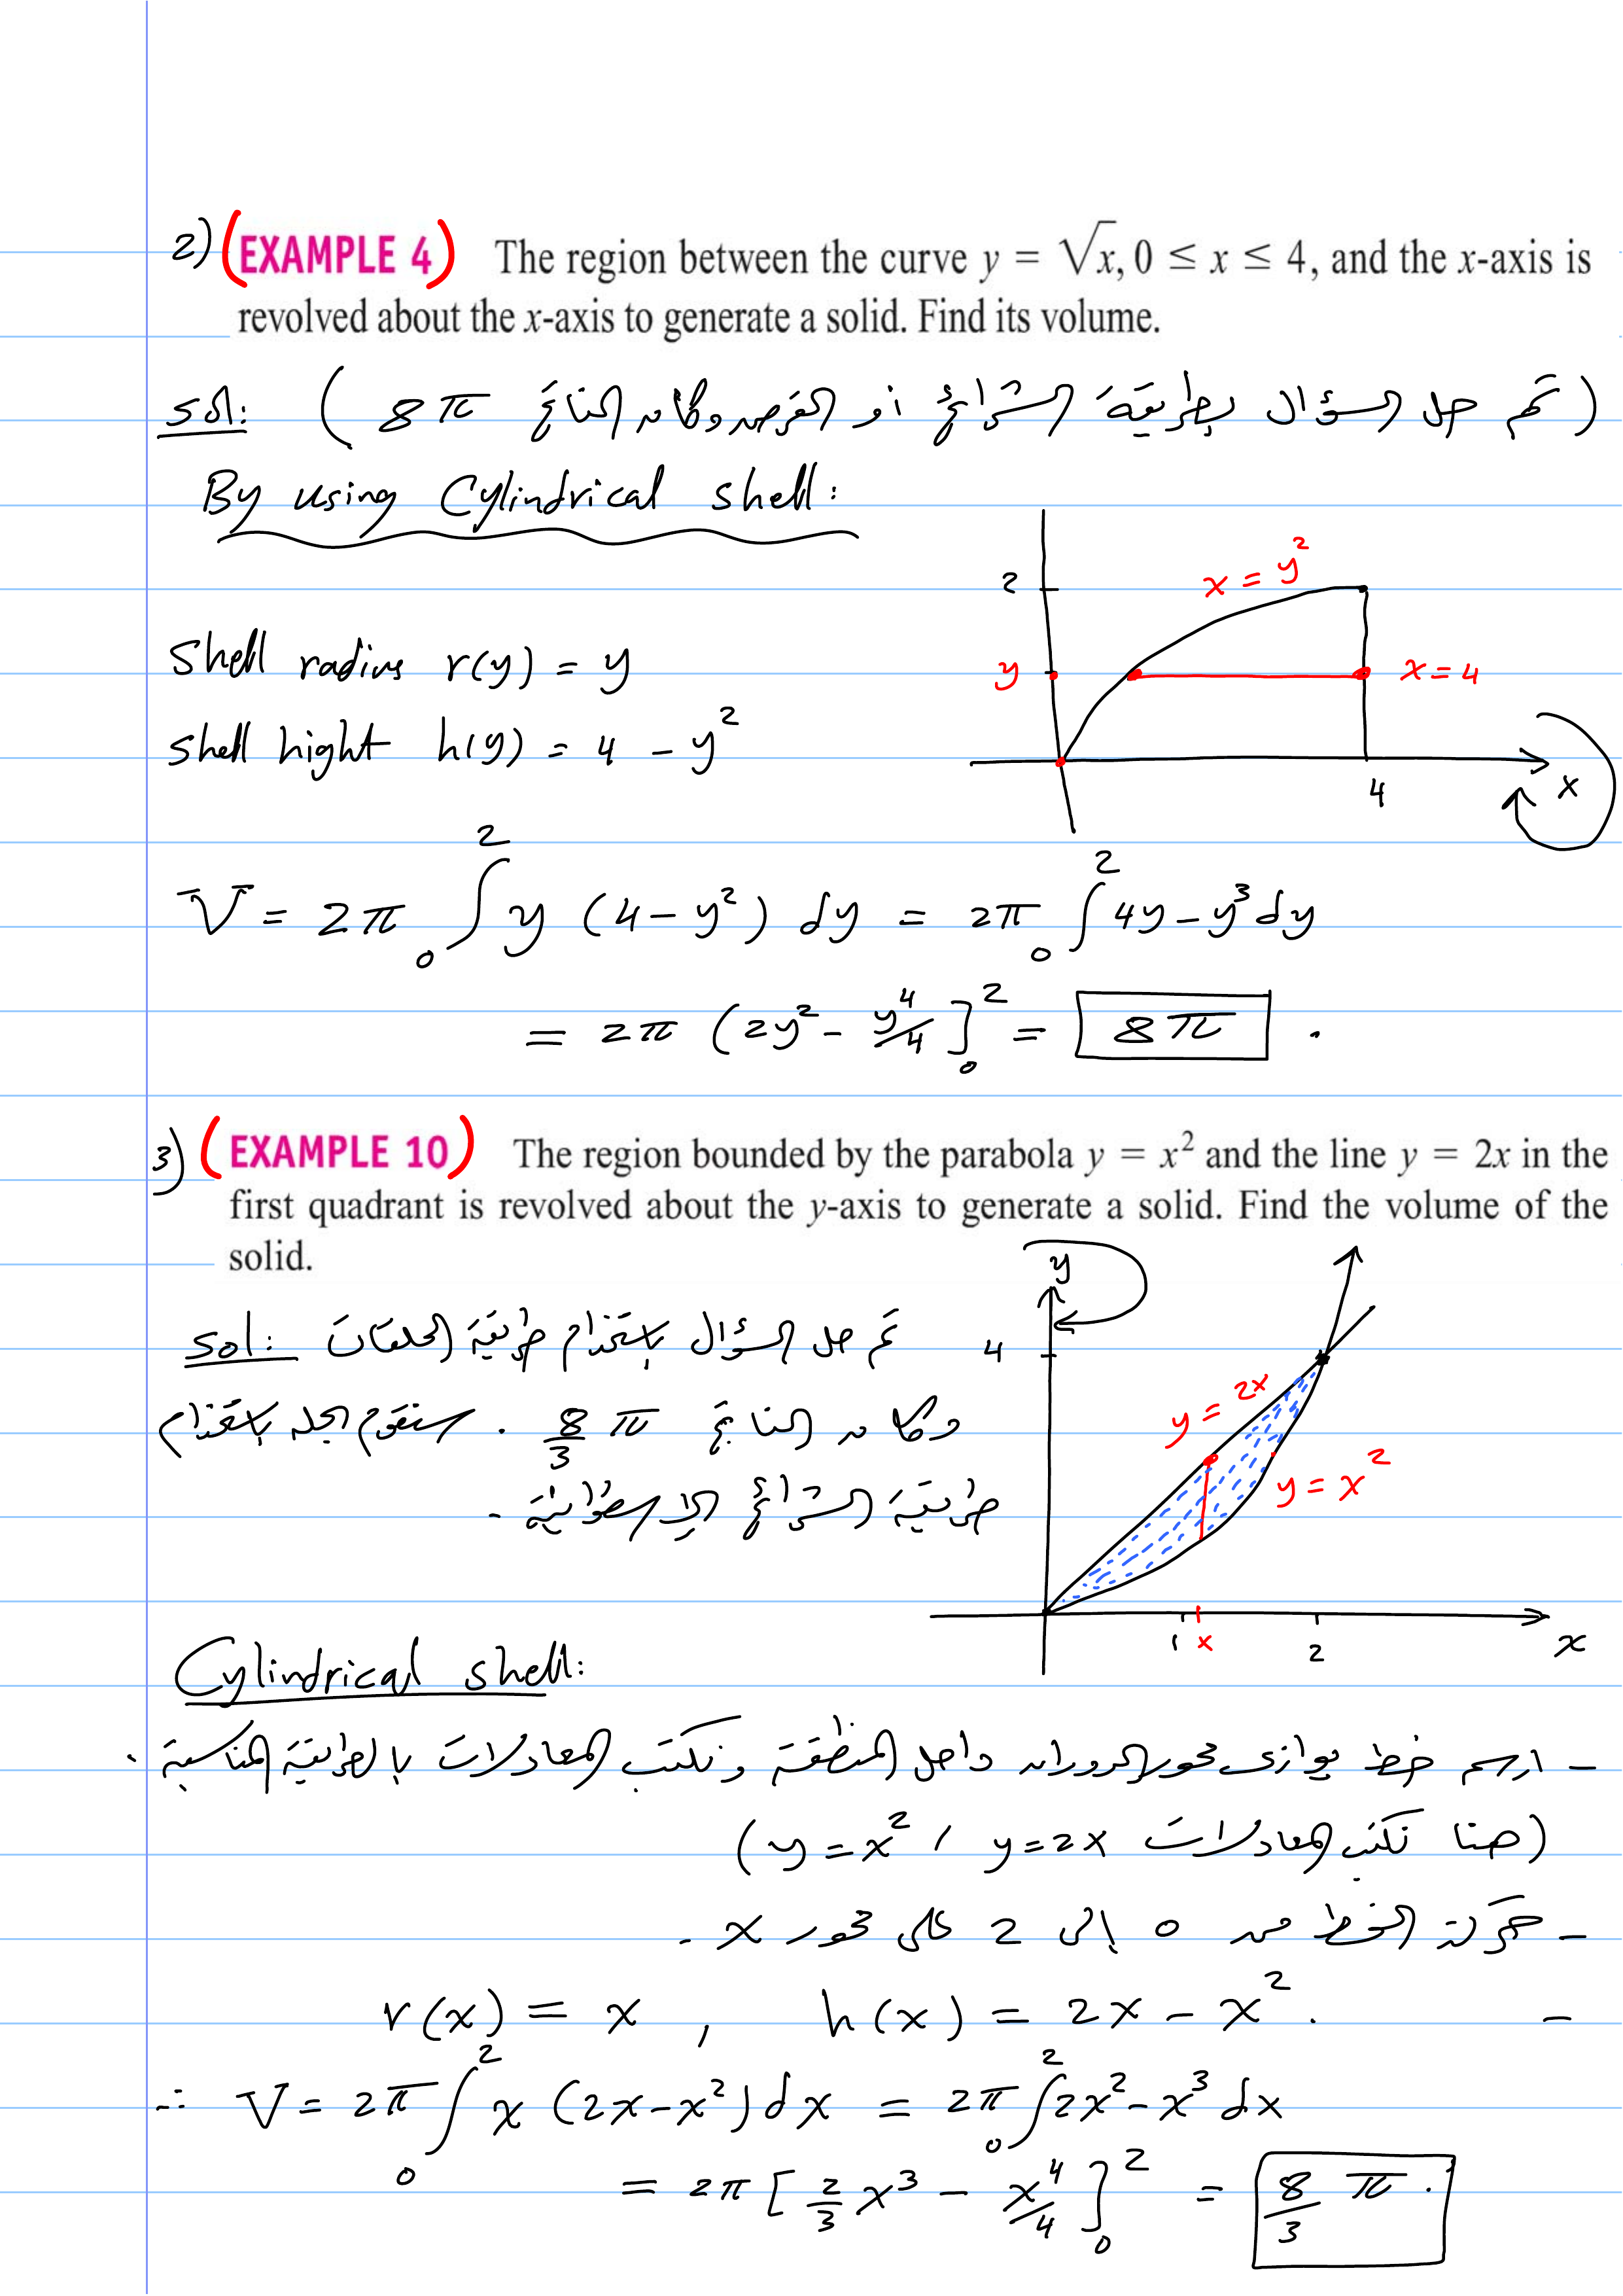 2) (EXAMPLE 4) The region between the curve y = √x, 0 ≤ x ≤ 4, and the x-axis is
revolved about the x-axis to generate a solid. Find its volume.
sol: (تم حل السؤال بطريقة الشرائح أو القرص وكان الناتج 8π)
By using Cylindrical shell:
x = y²
2
shell radius r(y) = y
y
x = 4
shell hight h(y) = 4 - y²
4
x
V = 2π ∫₀² y (4 - y²) dy = 2π ∫₀² 4y - y³ dy
= 2π (2y² - y⁴/4]₀² = 8π .
3) (EXAMPLE 10) The region bounded by the parabola y = x² and the line y = 2x in the
first quadrant is revolved about the y-axis to generate a solid. Find the volume of the
solid.
y
sol: تم حل السؤال باستخدام طريقة الحلقات
4
y = 2x
وكان الناتج 8/3 π . سنقوم بحله باستخدام
y = x²
طريقة الشرائح الاسطوانية .
1
x
2
x
Cylindrical shell:
- ارسم خط يوازي محور الدوران داخل المنطقة ونكتب المعادلات بالطريقة المناسبة .
(هنا نكتب المعادلات y = 2x , y = x²)
- حركة الخط من 0 إلى 2 على محور x .
- r(x) = x , h(x) = 2x - x² .
∴ V = 2π ∫₀² x (2x - x²) dx = 2π ∫₀² 2x² - x³ dx
= 2π [2/3 x³ - x⁴/4]₀² = 8/3 π .